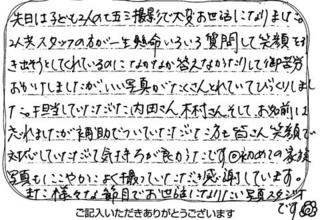 先日は子ども2人の七五三撮影で大変お世話になりました。
2人共スタッフの方が一生懸命いろいろ質問して笑顔を引
き出そうとしてくれているのになかなか答えなかったりして御苦労
おかけしましたがいい写真がたくさんとれていてびっくりしまし
た。担当していただいた内田さん木村さんそしてお名前は
忘れましたが補助でついていただいた方も皆さん笑顔で
対応していただいて気持ちが良かったです◎初めての家族
写真もにこやかによく撮っていただき感謝しています。
また様々な節目でお世話になりたい写真スタジオ
です
ご記入いただきありがとうございます